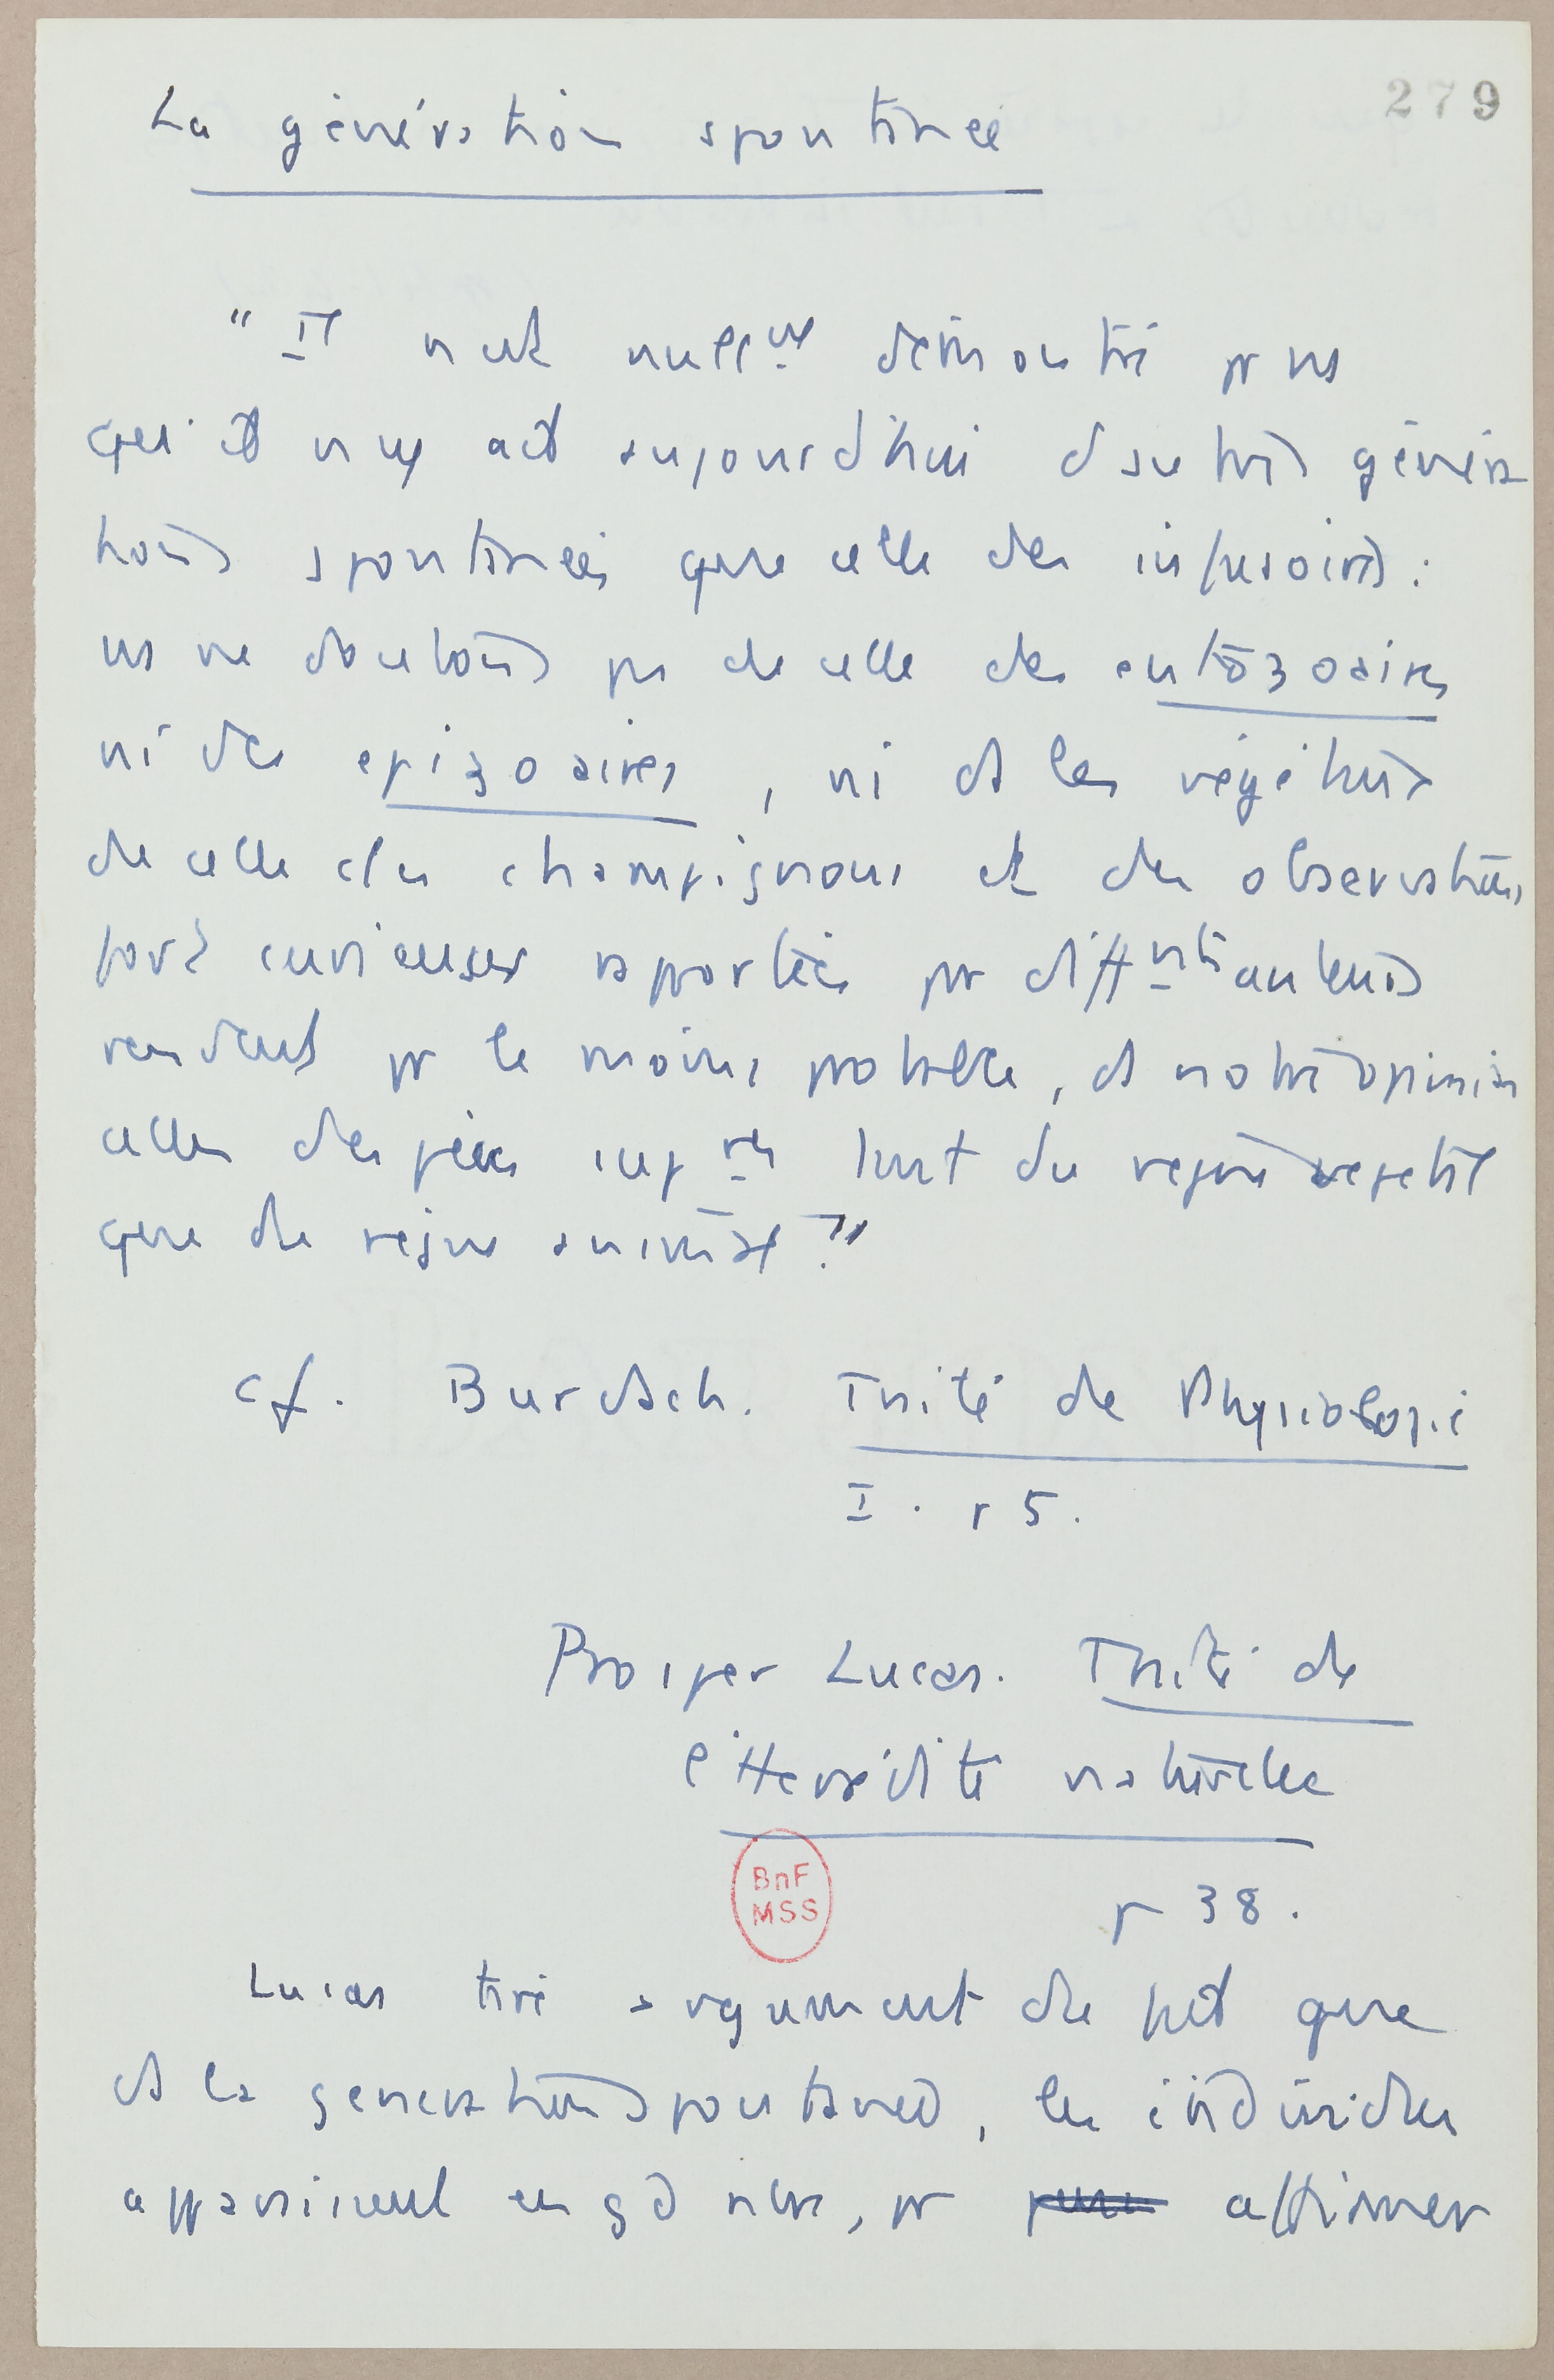 279
La génération spontanée
"Il n'est null^mt démontré pr ns
qu'il n'y ait aujourd'hui d'autres généra
tions spontanées que celle des infusoires :
ns ne doutons pas de celle des entozoaires
ni des epizoaires, ni ds les végétaux
de celle des champignons et des observations
fort curieuses rapportées par diff^rts auteurs
rendent pr le moins probable, ds notre opinion
celles des espèces sup^res tant du règne végétal
que du règne animal."
cf. Burdach. Traité de Physiologie
I. p 5.
Prosper Lucas. Traité de
l'Hérédité naturelle
BnF
MSS
p 38.
Lucas tire argument du fait que
ds la génération spontanée, les individus
apparaissent en gd nbre, pr affirmer